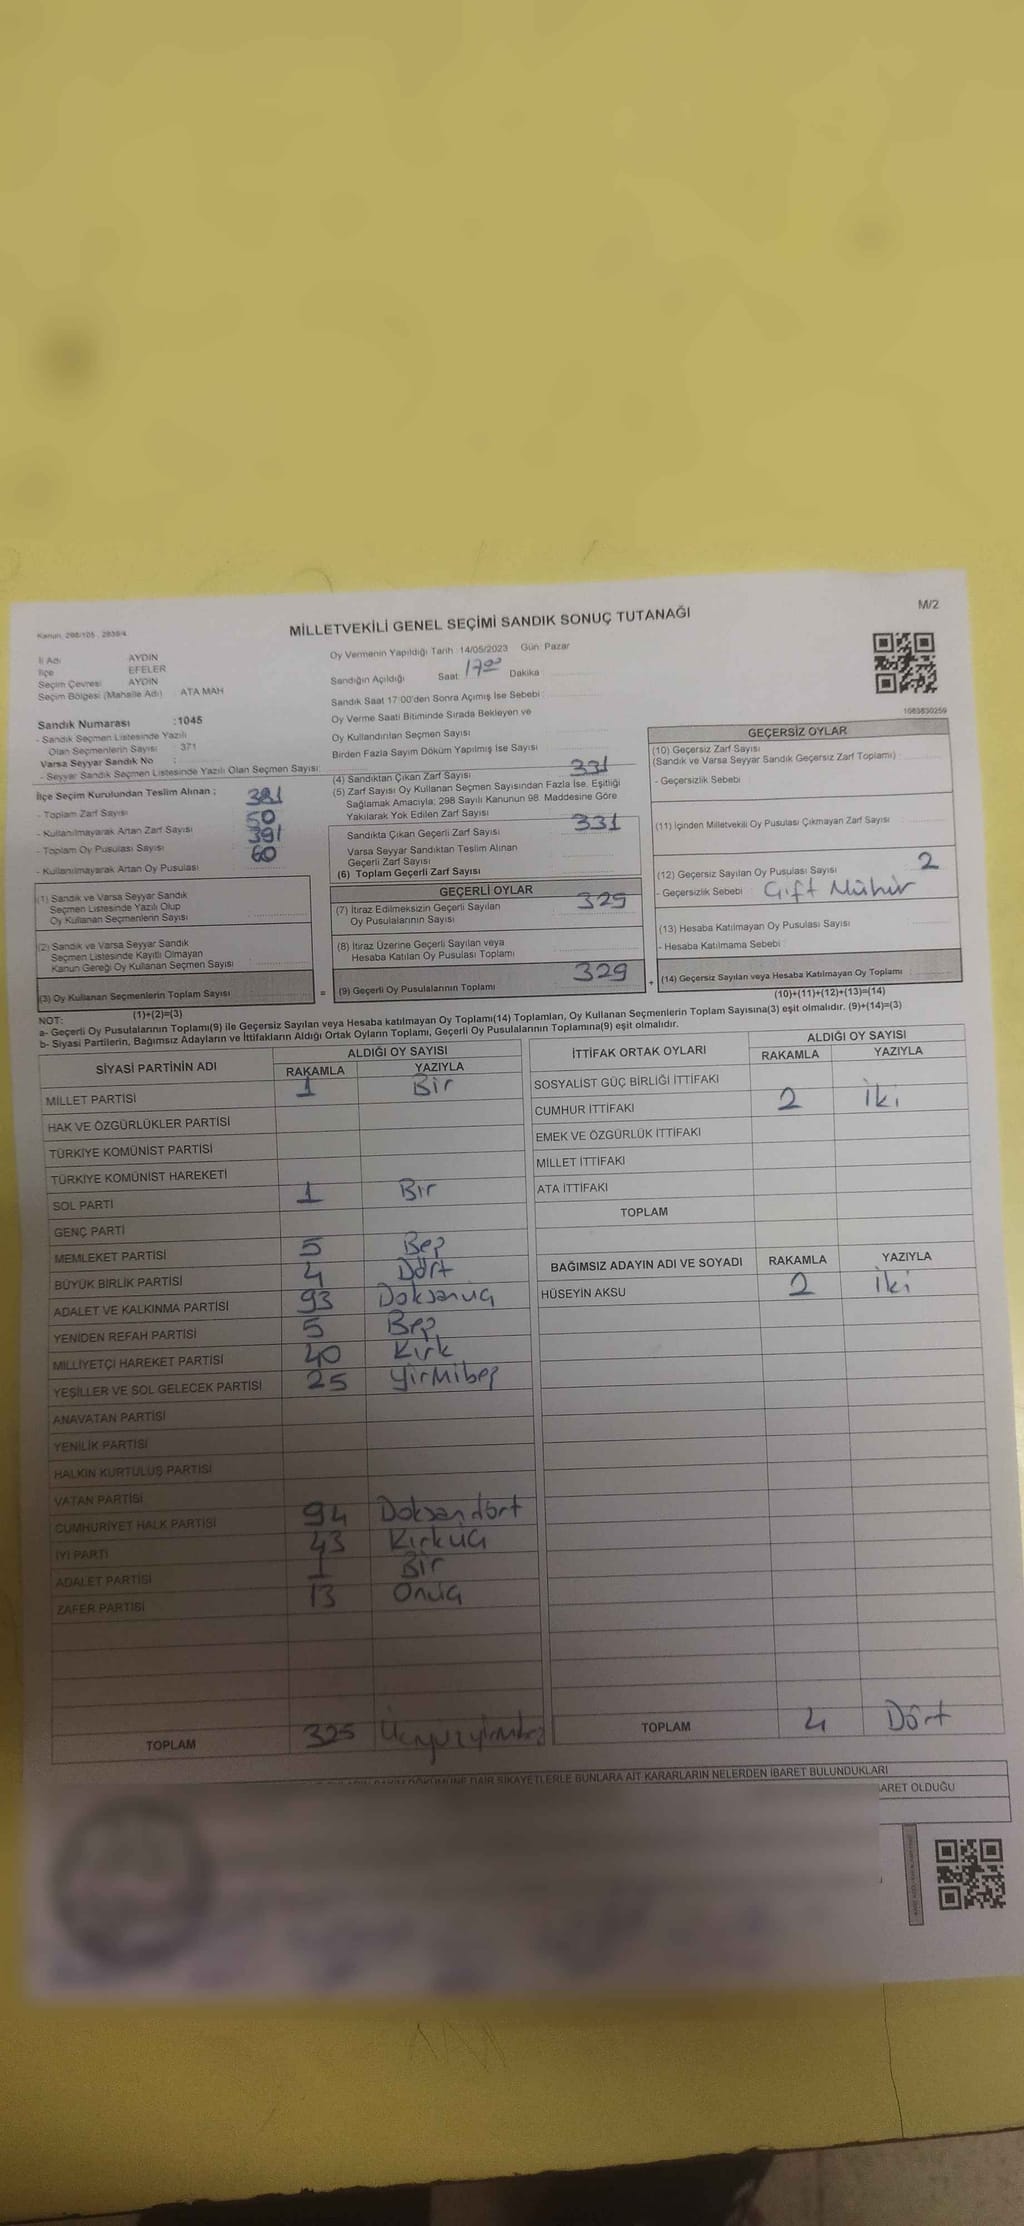 Kanun: 298/105 , 2839/4
MİLLETVEKİLİ GENEL SEÇİMİ SANDIK SONUÇ TUTANAĞI
M/2
İl Adı AYDIN
İlçe EFELER
Seçim Çevresi AYDIN
Seçim Bölgesi (Mahalle Adı) : ATA MAH
Oy Vermenin Yapıldığı Tarih :14/05/2023 Gün: Pazar
Sandığın Açıldığı Saat: 17⁰⁰ Dakika
Sandık Saat 17:00'den Sonra Açımış İse Sebebi :
Oy Verme Saati Bitiminde Sırada Bekleyen ve
Oy Kullandırılan Seçmen Sayısı
Birden Fazla Sayım Döküm Yapılmış İse Sayısı
1083830259
Sandık Numarası :1045
- Sandık Seçmen Listesinde Yazılı
Olan Seçmenlerin Sayısı : 371
Varsa Seyyar Sandık No :
- Seyyar Sandık Seçmen Listesinde Yazılı Olan Seçmen Sayısı:
İlçe Seçim Kurulundan Teslim Alınan ;
- Toplam Zarf Sayısı 381
- Kullanılmayarak Artan Zarf Sayısı 50
- Toplam Oy Pusulası Sayısı 391
- Kullanılmayarak Artan Oy Pusulası 60
(1) Sandık ve Varsa Seyyar Sandık
Seçmen Listesinde Yazılı Olup
Oy Kullanan Seçmenlerin Sayısı
(2) Sandık ve Varsa Seyyar Sandık
Seçmen Listesinde Kayıtlı Olmayan
Kanun Gereği Oy Kullanan Seçmen Sayısı
(3) Oy Kullanan Seçmenlerin Toplam Sayısı
(1)+(2)=(3)
(4) Sandıktan Çıkan Zarf Sayısı 331
(5) Zarf Sayısı Oy Kullanan Seçmen Sayısından Fazla İse, Eşitliği
Sağlamak Amacıyla; 298 Sayılı Kanunun 98. Maddesine Göre
Yakılarak Yok Edilen Zarf Sayısı
Sandıkta Çıkan Geçerli Zarf Sayısı 331
Varsa Seyyar Sandıktan Teslim Alınan
Geçerli Zarf Sayısı
(6) Toplam Geçerli Zarf Sayısı
GEÇERLİ OYLAR
(7) İtiraz Edilmeksizin Geçerli Sayılan
Oy Pusulalarının Sayısı 329
(8) İtiraz Üzerine Geçerli Sayılan veya
Hesaba Katılan Oy Pusulası Toplamı
= (9) Geçerli Oy Pusulalarının Toplamı 329 +
GEÇERSİZ OYLAR
(10) Geçersiz Zarf Sayısı
(Sandık ve Varsa Seyyar Sandık Geçersiz Zarf Toplamı) :
- Geçersizlik Sebebi :
(11) İçinden Milletvekili Oy Pusulası Çıkmayan Zarf Sayısı
(12) Geçersiz Sayılan Oy Pusulası Sayısı 2
- Geçersizlik Sebebi : Çift Mühür
(13) Hesaba Katılmayan Oy Pusulası Sayısı
- Hesaba Katılmama Sebebi :
(14) Geçersiz Sayılan veya Hesaba Katılmayan Oy Toplamı
(10)+(11)+(12)+(13)=(14)
NOT:
a- Geçerli Oy Pusulalarının Toplamı(9) ile Geçersiz Sayılan veya Hesaba katılmayan Oy Toplamı(14) Toplamları, Oy Kullanan Seçmenlerin Toplam Sayısına(3) eşit olmalıdır. (9)+(14)=(3)
b- Siyasi Partilerin, Bağımsız Adayların ve İttifakların Aldığı Ortak Oyların Toplamı, Geçerli Oy Pusulalarının Toplamına(9) eşit olmalıdır.
SİYASİ PARTİNİN ADI ALDIĞI OY SAYISI
RAKAMLA YAZIYLA
MİLLET PARTİSİ 1 Bir
HAK VE ÖZGÜRLÜKLER PARTİSİ
TÜRKİYE KOMÜNİST PARTİSİ
TÜRKİYE KOMÜNİST HAREKETİ
SOL PARTİ 1 Bir
GENÇ PARTİ
MEMLEKET PARTİSİ 5 Beş
BÜYÜK BİRLİK PARTİSİ 4 Dört
ADALET VE KALKINMA PARTİSİ 93 Doksanüç
YENİDEN REFAH PARTİSİ 5 Beş
MİLLİYETÇİ HAREKET PARTİSİ 40 Kırk
YEŞİLLER VE SOL GELECEK PARTİSİ 25 Yirmibeş
ANAVATAN PARTİSİ
YENİLİK PARTİSİ
HALKIN KURTULUŞ PARTİSİ
VATAN PARTİSİ
CUMHURİYET HALK PARTİSİ 94 Doksandört
İYİ PARTİ 43 Kırküç
ADALET PARTİSİ 1 Bir
ZAFER PARTİSİ 13 Onüç
TOPLAM 325 Üçyüzyirmibeş
İTTİFAK ORTAK OYLARI ALDIĞI OY SAYISI
RAKAMLA YAZIYLA
SOSYALİST GÜÇ BİRLİĞİ İTTİFAKI
CUMHUR İTTİFAKI 2 İki
EMEK VE ÖZGÜRLÜK İTTİFAKI
MİLLET İTTİFAKI
ATA İTTİFAKI
TOPLAM
BAĞIMSIZ ADAYIN ADI VE SOYADI RAKAMLA YAZIYLA
HÜSEYİN AKSU 2 İki
TOPLAM 4 Dört
DÖKÜMÜNE DAİR ŞİKAYETLERLE BUNLARA AİT KARARLARIN NELERDEN İBARET BULUNDUKLARI
İBARET OLDUĞU